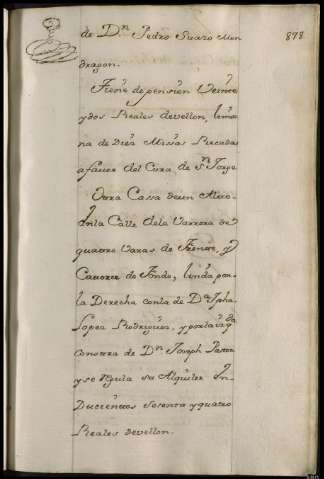 de Dn. Pedro Suaro Mon
878
dragon.
Tiene de pension Veinte
y dos Reales de vellon, limos
na de Diez Misas Rezadas
a favor del Cura de Sn. Jorge
Otra Casa de un Alto
en la Calle de la Varrera de
quatro Varas de Frente, y
Catorze de Fondo, linda por
la Derecha con la de Da. Jpha.
Lopez Rodriguez, y por la izqda.
con otra de Dn. Joseph Pastor
y se regula su Alquiler En
Duecientos Sesenta y quatro
Reales de vellon.